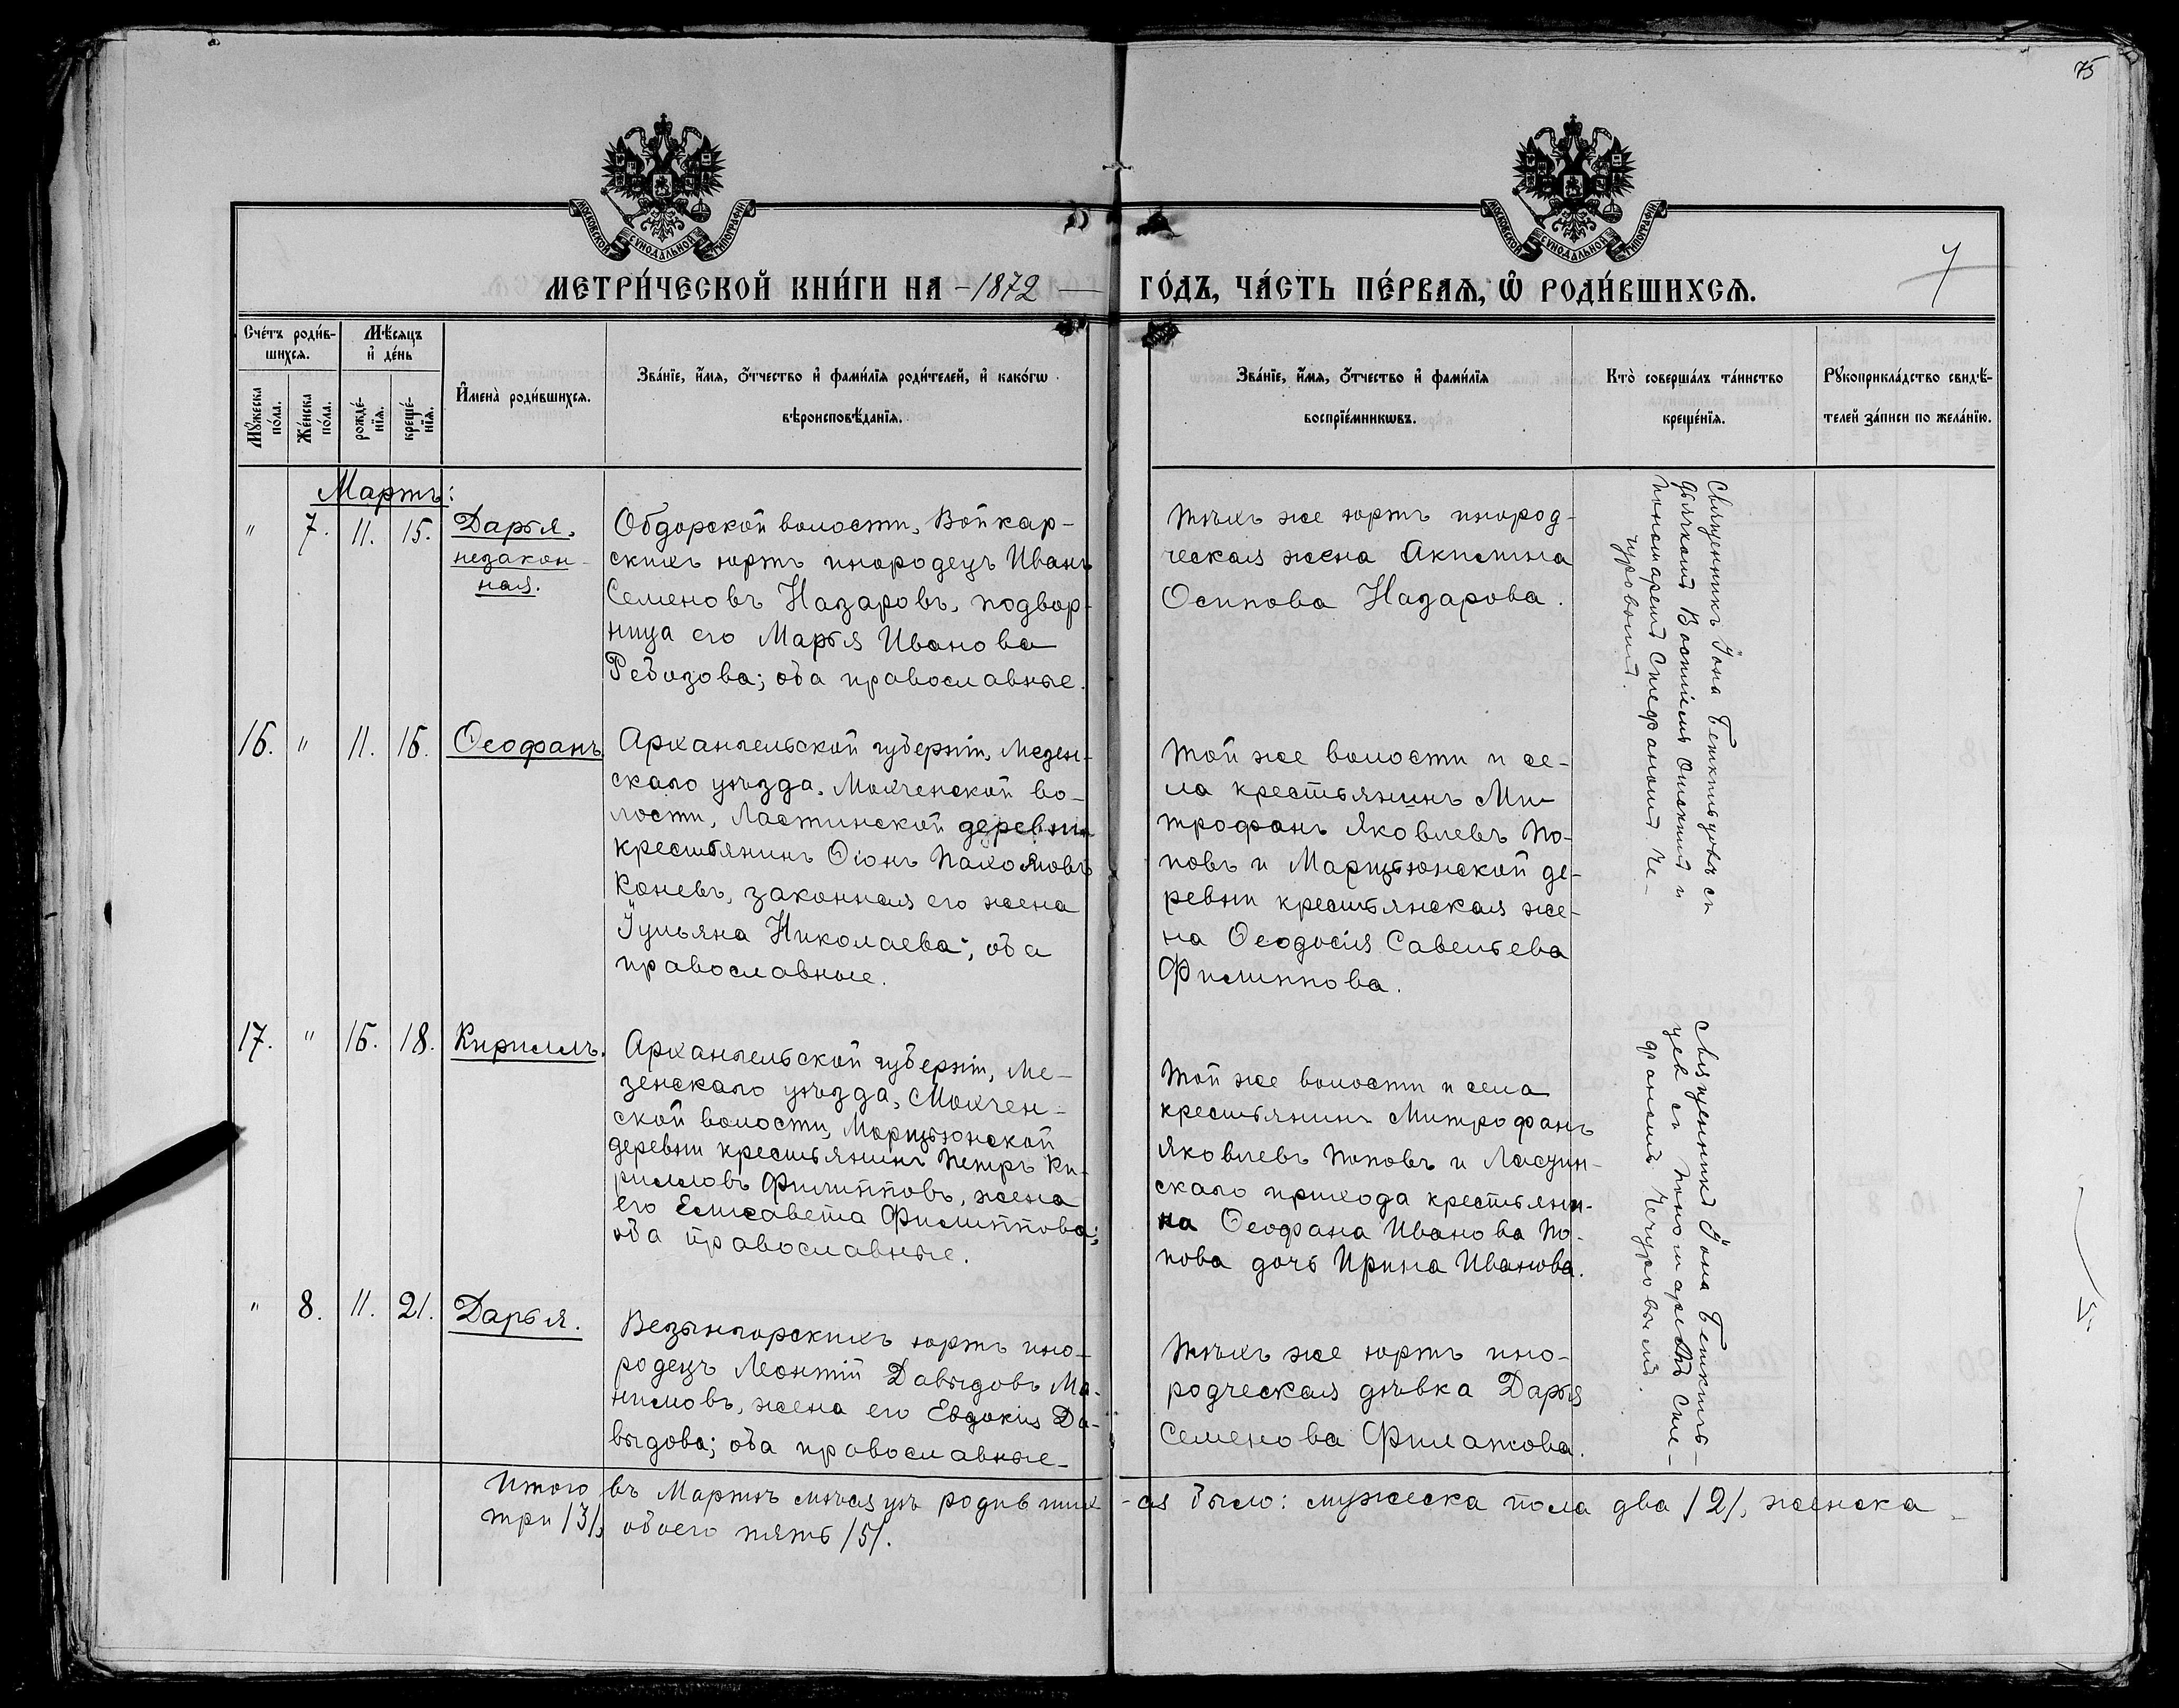 75
МОСКОВСКОЙ СѴНОДАЛЬНОЙ ТИПОГРАФІИ
МОСКОВСКОЙ СѴНОДАЛЬНОЙ ТИПОГРАФІИ
7
МЕТРИ́ЧЕСКОЙ КНИ́ГИ НА -1872- ГО́ДЪ, ЧА́СТЬ ПЕ́РВАѦ, Ѡ҆ РОДИ́ВШИХСѦ.
Сче́тъ роди́в-
шихсѧ.
Мѣ́сѧцъ
и҆ де́нь
Мꙋ́жеска
по́ла.
Же́нска
по́ла.
рожде́-
нїѧ.
креще́-
нїѧ.
И҆мена̀ роди́вшихсѧ.
Зва́нїе, и҆́мѧ, ѻ҆́тчество и҆ фами́лїѧ роди́телей, и҆ како́гѡ
вѣроисповѣ́данїѧ.
Зва́нїе, и҆́мѧ, ѻ҆́тчество и҆ фами́лїѧ
воспрїе́мникѡвъ.
Кто̀ соверша́лъ та́инство
креще́нїѧ.
Рꙋкоприкла́дство свидѣ́-
телей за́писи по жела́нїю.
Мартъ:
" 7. 11. 15. Дарья,
незакон-
ная.
Обдорской волости, Войкар-
скихъ юртъ инородецъ Иванъ
Семеновъ Назаровъ, подвор-
ница его Марья Иванова
Ребизова; оба православные.
Тѣхъ же юртъ инород-
ческая жена Акилина
Осипова Назарова.
Священникъ Іона Бешкильцовъ съ
дьячкомъ и
пономаремъ Стефаномъ Че-
чуровымъ.
16. " 11. 16. Ѳеофанъ
Архангельской губерніи, Мезен-
скаго уѣзда, Мохченской во-
лости, Ластинской деревни
крестьянинъ Ѳіонъ Пахомовъ
Коневъ, законная его жена
Іульяна Николаева; оба
православные.
Той же волости и се-
ла крестьянинъ Ми-
трофанъ Яковлевъ По-
повъ и Марицьюнской де-
ревни крестьянская же-
на Ѳеодосія Савельева
Филиппова.
17. " 16. 18. Кириллъ.
Архангельской губерніи, Ме-
зенскаго уѣзда, Мохчен-
ской волости, Марицьюнской
деревни крестьянинъ Петръ Ки-
рилловъ Филипповъ, жена
его Елисавета Филиппова;
оба православные.
Той же волости и села
крестьянинъ Митрофанъ
Яковлевъ Поповъ и
скаго прихода крестьяни-
на Ѳеофана Иванова По-
пова дочь Ирина Иванова.
Священникъ Іона Бешкиль-
цев съ пономаремъ Сте-
фаномъ Чечуровымъ.
" 8. 11. 21. Дарья.
юртъ ино-
родецъ Леонтій Давыдовъ Ма-
нимовъ, жена его Евдокія Да-
выдова; оба православные-
Тѣхъ же юртъ ино-
родческая дѣвка Дарья
Семенова Филатова.
Итого въ Мартѣ мѣсяцѣ родивших-ся было: мужеска пола два /2/, женска
три /3/, обоего пять /5/.